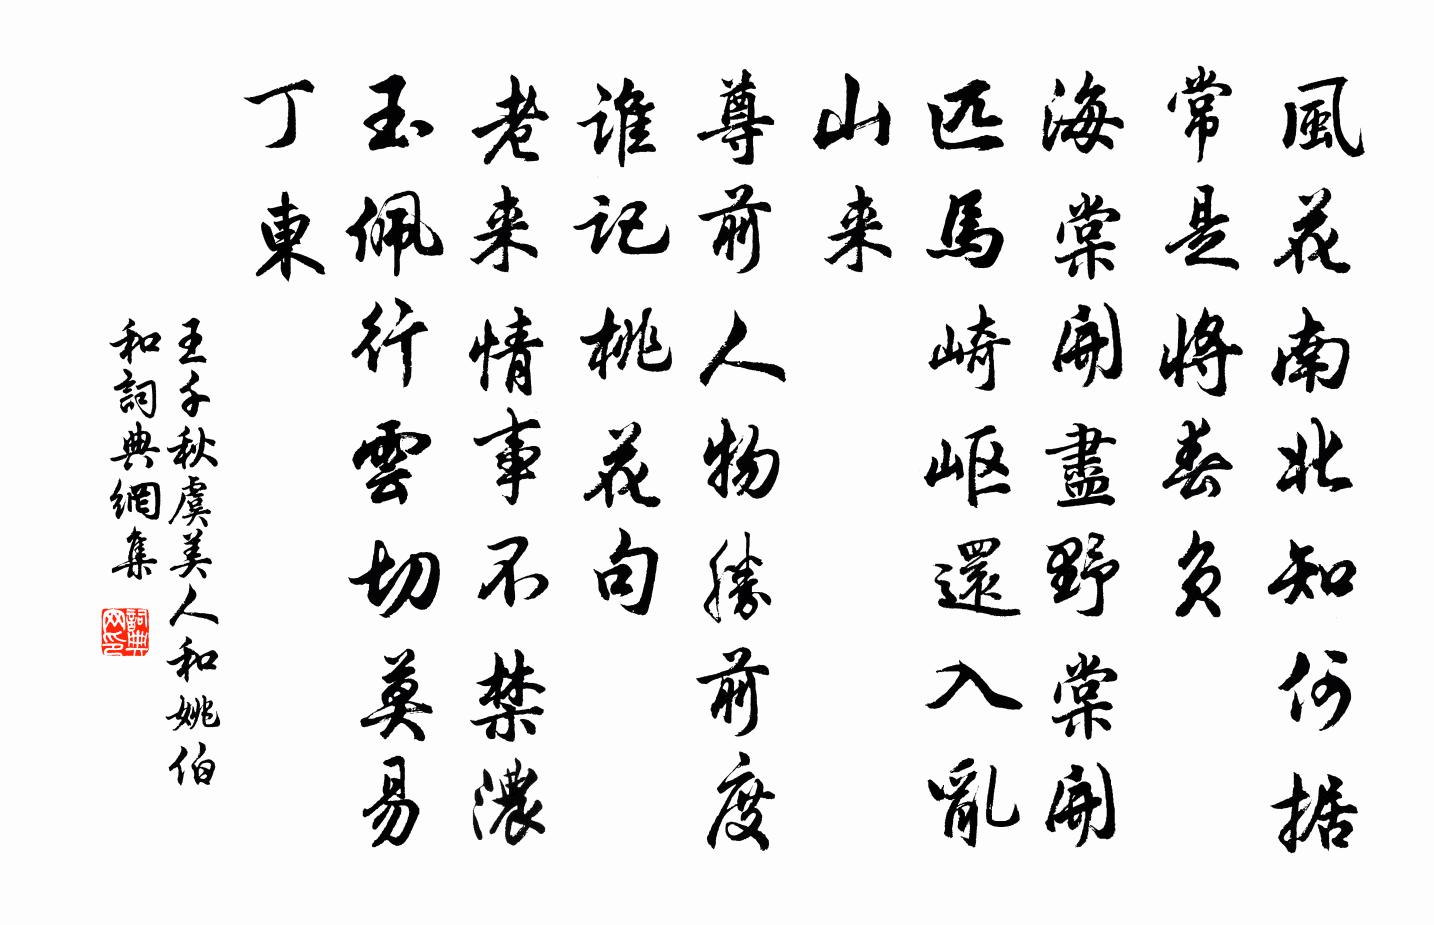 風花南北知何据
常是將春負
海棠開盡野棠開
匹馬崎岖還入亂
山来
尊前人物勝前度
誰記桃花句
老来情事不禁濃
玉佩行雲切莫易
丁東
王千秋虞美人和姚伯
和詞典網集
詞典網印